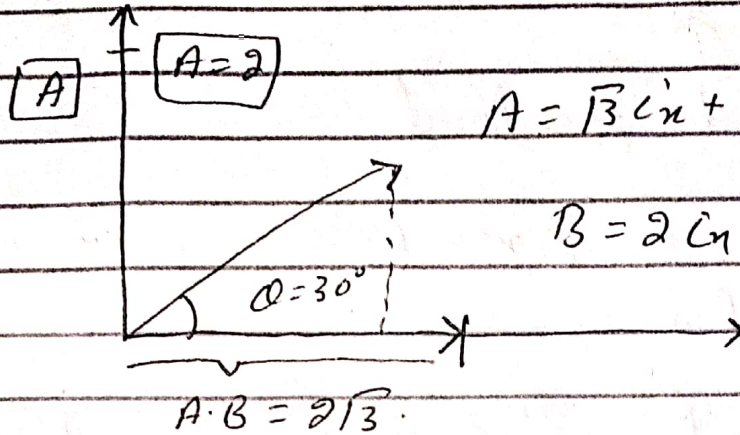 A = 2
A
A = √3 ix +
B = 2 ix
θ = 30°
A·B = 2√3.